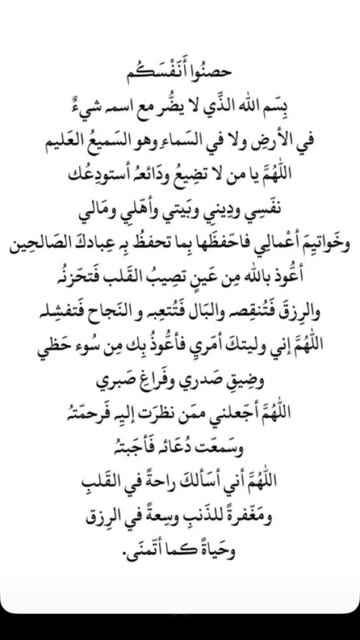 حصنُوا أَنَفْسَكُم
بِسَم الله الذَّي لا يضُّر مع اسمه شيءٌ
في الأرضِ ولا في السَماءِ وهو السَميعُ العَليم
اللهُمَّ يا من لا تضِيعُ ودَائعُهُ أستودِعُك
نفَسِي ودِيني وبَيتي وأهَلِي ومَالي
وخَواتِيمَ أعْمالِي فاحّفظَها بِما تحفظُ بِہ عِبادكَ الصَالحِين
أعُّوذ بالله مِن عَينٍ تصِيبُ القَلب فَتحَزنُہ
والرِزقَ فَتُنقِصه والبَال فَتُتعِبہ و النَجاح فَتفشِلہ
اللهُمَّ إني وليتكَ أمَري فأعُّوذُ بِك مِن سُوء حَظي
وضِيقِ صَدري وفَراغِ صَبري
اللهُمَّ أجَعلني ممَن نظرَت إليِہ فَرحمّتهُ
وسَمعّت دُعَائہ فَأجَبتهُ
اللهُمَّ أني أسَألكَ راحةً في القَلبِ
ومَغَفرةً للذَنبِ وسِعةً في الرِزق
وحَياةً كما أتّمنَى.